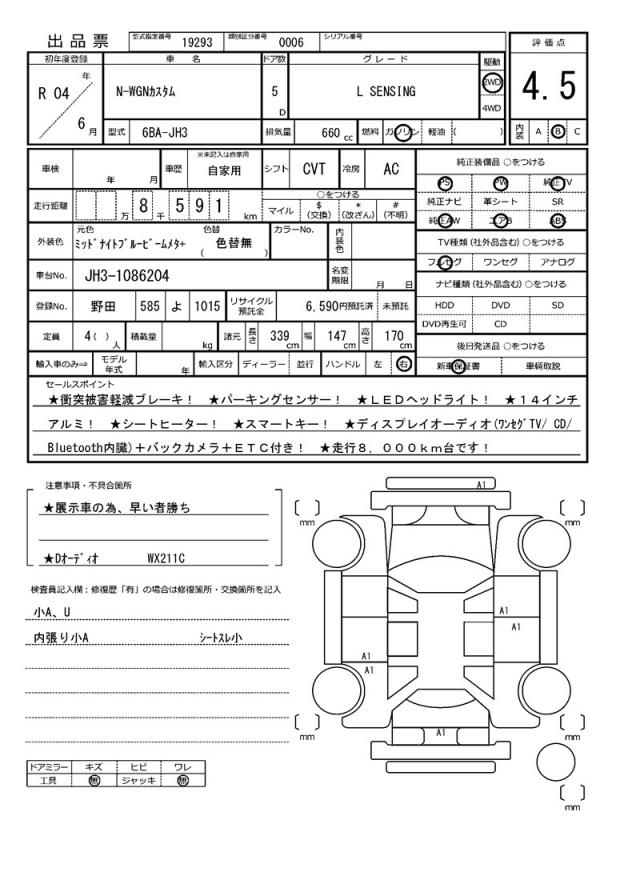 出品票 型式指定番号 19293 類別区分番号 0006 シリアル番号
初年度登録 車名 ドア数 グレード 駆動 評価点
R 04 年 6 月 N-WGNカスタム 5 D L SENSING 2WD 4WD 4.5
型式 6BA-JH3 排気量 660 cc 燃料 ガソリン 軽油 ( ) 内装 A B C
車検 年 月 車歴 ※未記入は自家用 自家用 シフト CVT 冷房 AC
純正装備品 ○をつける
PS PW 純正TV
走行距離 万 8 千 5 9 1 km ○をつける
マイル $ (交換) * (改ざん) # (不明)
純正ナビ 革シート SR
純正AW エアB ABS
外装色 元色 ミッドナイトブルービームメタ+ 色替 ( 色替無 ) カラーNo. 内装色
TV種類(社外品含む)○をつける
フルセグ ワンセグ アナログ
車台No. JH3-1086204 名変期限 月 日
ナビ種類(社外品含む)○をつける
HDD DVD SD
DVD再生可 CD
登録No. 野田 585 よ 1015 リサイクル預託金 6,590円預託済 未預託
定員 4( ) 人 積載量 kg 諸元 長さ 339 cm 幅 147 cm 高さ 170 cm
後日発送品 ○をつける
新車保証書 車輌取説
輸入車のみ⇒ モデル年式 年 輸入区分 ディーラー 並行 ハンドル 左 右
セールスポイント
★衝突被害軽減ブレーキ! ★パーキングセンサー! ★LEDヘッドライト! ★14インチ
アルミ! ★シートヒーター! ★スマートキー! ★ディスプレイオーディオ(ワンセグTV/ CD/
Bluetooth内臓)+バックカメラ+ETC付き! ★走行8,000km台です!
注意事項・不具合箇所
★展示車の為、早い者勝ち
★Dオーディオ WX211C
検査員記入欄:修復歴「有」の場合は修復箇所・交換箇所を記入
小A、U
内張り小A シートスレ小
ドアミラー キズ ヒビ ワレ
工具 無 ジャッキ 無
A1
mm
mm
A1
A1
A1
A1
A1
mm
mm
mm